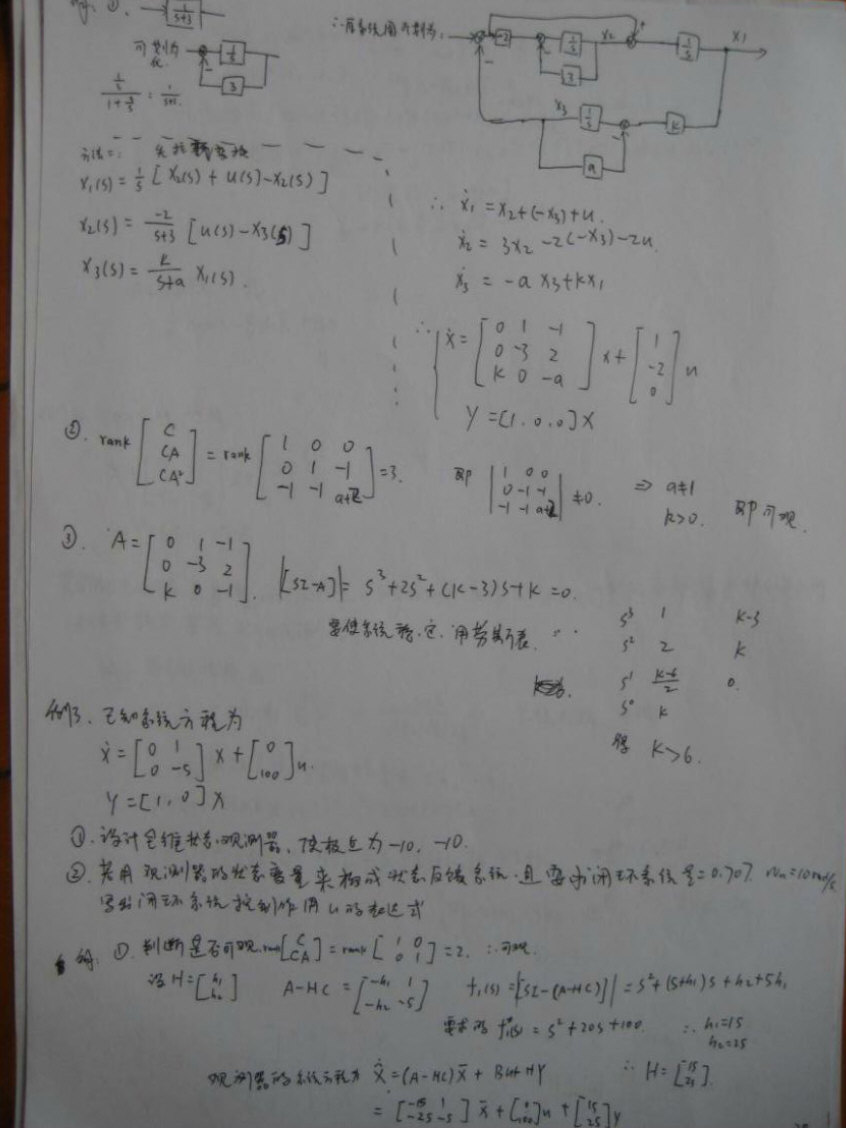 解: ①. 1/(s+3)
可划为
1/s
3
(1/s)/(1+3/s) = 1/(s+3)
∴原系统图可划为:
-2 1/s x2 1/s x1
3
x3 1/s k
a
方法二:
x1(s) = 1/s [x2(s) + u(s) - x3(s)]
x2(s) = -2/(s+3) [u(s) - x3(s)]
x3(s) = k/(s+a) x1(s).
∴ ẋ1 = x2 + (-x3) + u.
ẋ2 = 3x2 - 2(-x3) - 2u.
ẋ3 = -a x3 + kx1
∴ { ẋ = [0 1 -1; 0 -3 2; k 0 -a] x + [1; -2; 0] u
Y = [1, 0, 0] X
②. rank [C; CA; CA²] = rank [1 0 0; 0 1 -1; -1 -1 a+2] = 3. 即 |1 0 0; 0 -1 -1; -1 -1 a+2| ≠ 0. ⇒ a≠1
k>0. 即可观
③. A = [0 1 -1; 0 -3 2; k 0 -1]. |[sI-A]| = s³+2s²+(k-3)s+k = 0.
要使系统稳定,用劳斯表. ∴
s³ 1 k-3
s² 2 k
s¹ (k-6)/2 0.
s⁰ k
得 k>6.
例3、已知系统方程为
ẋ = [0 1; 0 -5] x + [0; 100] u.
Y = [1, 0] X
①. 设计全维状态观测器, 使极点为 -10, -10.
②. 若用观测器的状态变量来构成状态反馈系统,且要求闭环系统ξ=0.707. Wn=10rad/s
写出闭环系统控制作用u的表达式
解: ①. 判断是否可观 rank[C; CA] = rank [1 0; 0 1] = 2. ∴可观.
设H = [h1; h2] A-HC = [-h1 1; -h2 -5] f1(s) = |[sI-(A-HC)]| = s²+(5+h1)s+h2+5h1
要求的 f*1(s) = s²+20s+100. ∴ h1=15
h2=25
观测器的系统方程为 ẋ = (A-HC)x̄ + Bu+HY ∴ H = [15; 25].
= [-15 1; -25 -5] x̄ + [0; 100] u + [15; 25] y